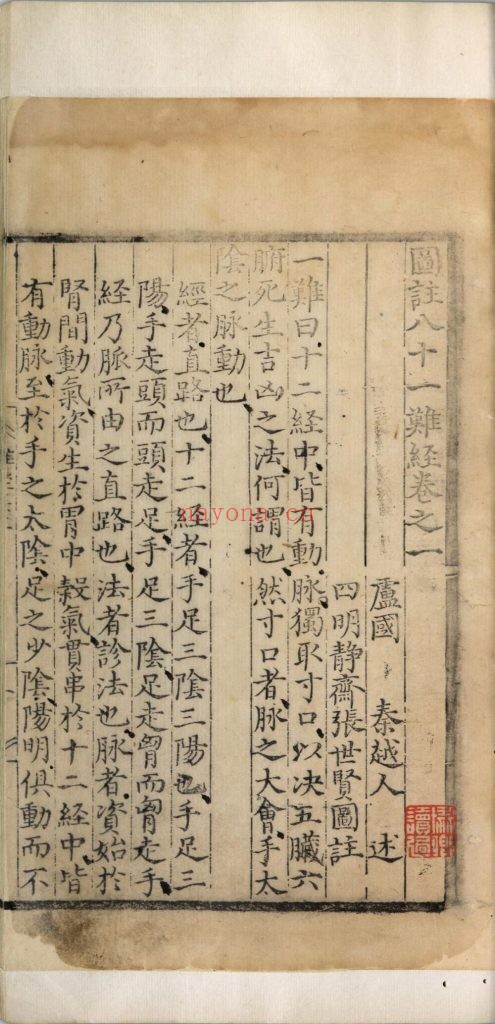 圖註八十一難経卷之一
盧國 秦越人 述
四明静齋張世賢圖註
一難曰十二経中皆有動脉獨取寸口以决五臟六
腑死生吉凶之法何謂也然寸口者脉之大會手太
陰之脉動也
經者直路也十二経者手足三陰三陽也手足三
陽手走頭而頭走足手足三陰足走胷而胷走手
经乃脈所由之直路也法者診法也脉者資始於
腎間動氣資生於胃中穀氣貫串於十二経中皆
有動脉至於手之太陰足之少陰陽明俱動而不
讀過
nayona.cn